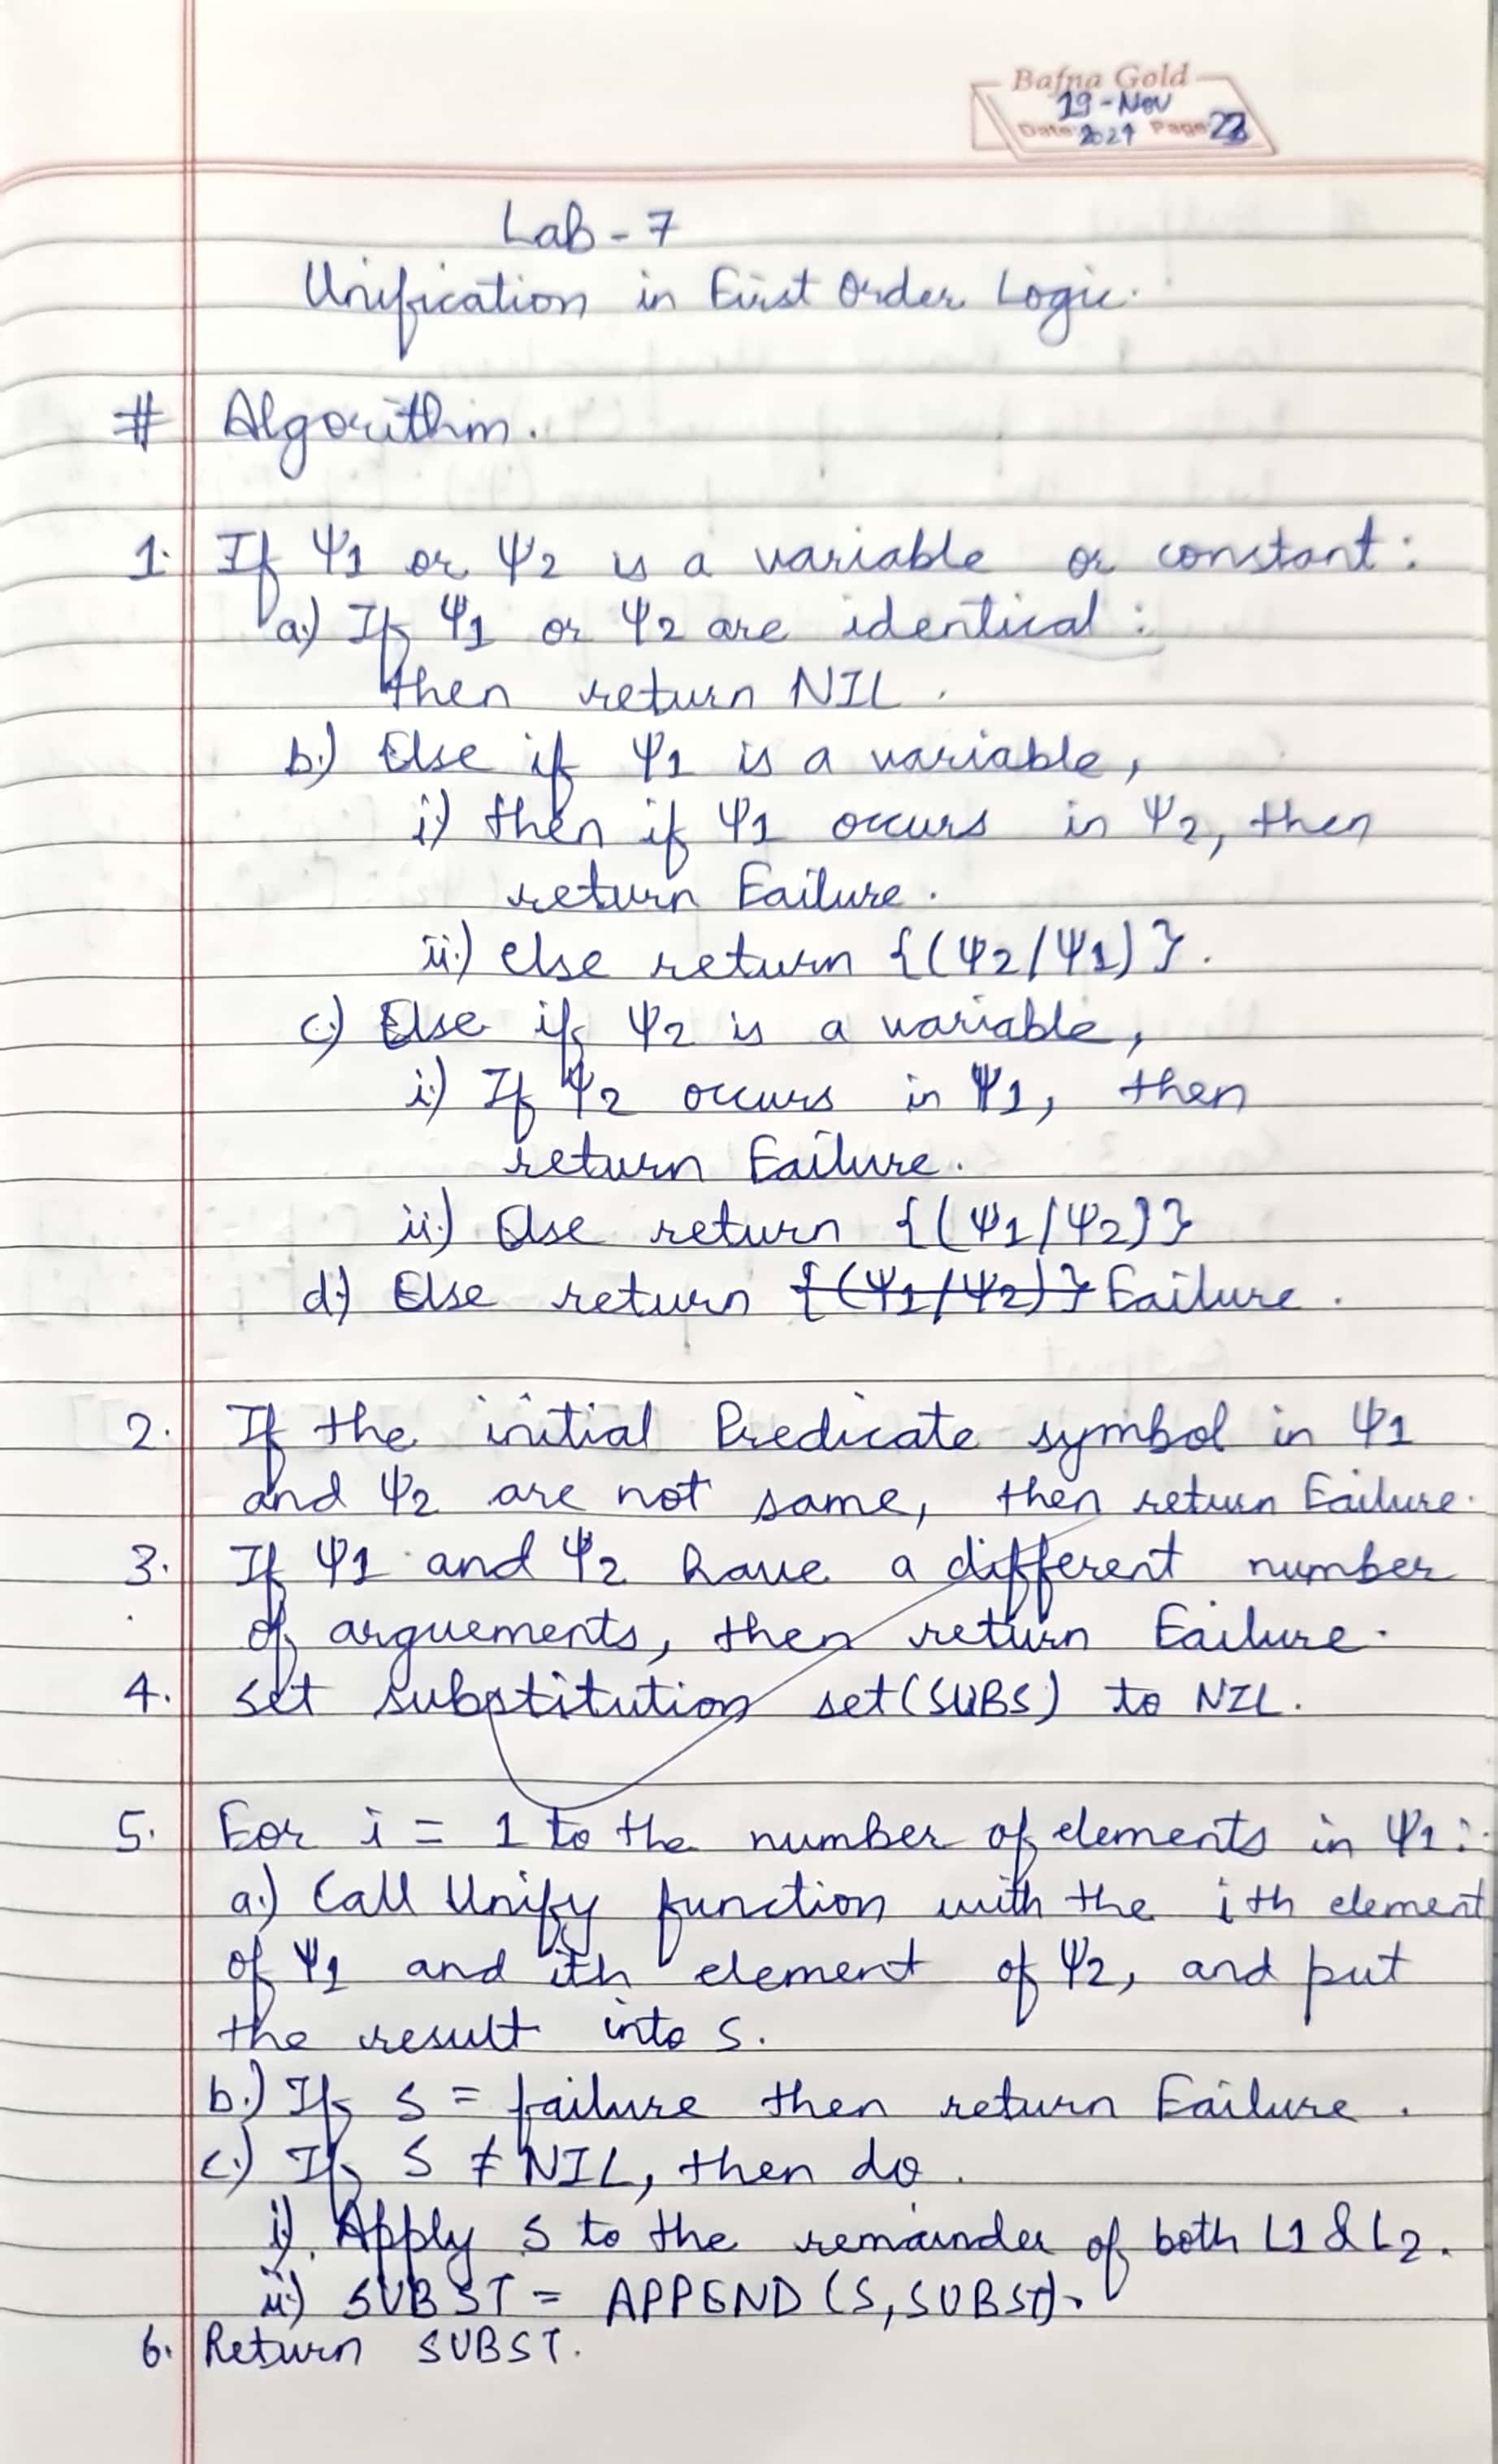 Bafna Gold
19-Nov
Date: 2024 Page: 22
Lab-7
Unification in First Order Logic.
# Algorithm.
1. If Ψ1 or Ψ2 is a variable or constant:
a.) If Ψ1 or Ψ2 are identical:
then return NIL.
b.) Else if Ψ1 is a variable,
i) then if Ψ1 occurs in Ψ2, then
return Failure.
ii.) else return {(Ψ2/Ψ1)}.
c.) Else if Ψ2 is a variable,
i.) If Ψ2 occurs in Ψ1, then
return Failure.
ii.) Else return {(Ψ1/Ψ2)}
d.) Else return {(Ψ1/Ψ2)} Failure.
2. If the initial Predicate symbol in Ψ1
and Ψ2 are not same, then return Failure.
3. If Ψ1 and Ψ2 have a different number
of arguements, then return Failure.
4. set substitution set(SUBS) to NIL.
5. For i = 1 to the number of elements in Ψ1:
a.) Call Unify function with the ith element
of Ψ1 and ith element of Ψ2, and put
the result into S.
b.) If S = failure then return Failure.
c.) If S ≠ NIL, then do.
i). Apply S to the remainder of both L1 & L2.
ii.) SUBST = APPEND (S, SUBST).
6. Return SUBST.